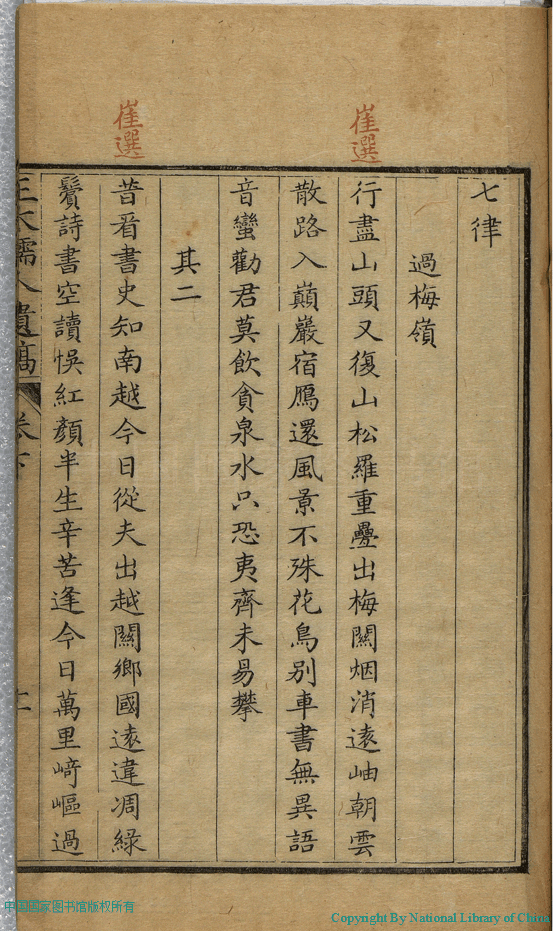 七律
過梅嶺
行盡山頭又復山松羅重疊出梅關烟消遠岫朝雲
散路入巔巖宿鴈還風景不殊花鳥别車書無異語
音蠻勸君莫飲貪泉水只恐夷齊未易攀
其二
昔看書史知南越今日從夫出越關鄉國遠違凋綠
鬢詩書空讀悞紅顏半生辛苦逢今日萬里﨑嶇過
崔選
崔選
孺人遺稿
卷下
中国国家图书馆版权所有
Copyright By National Library of China